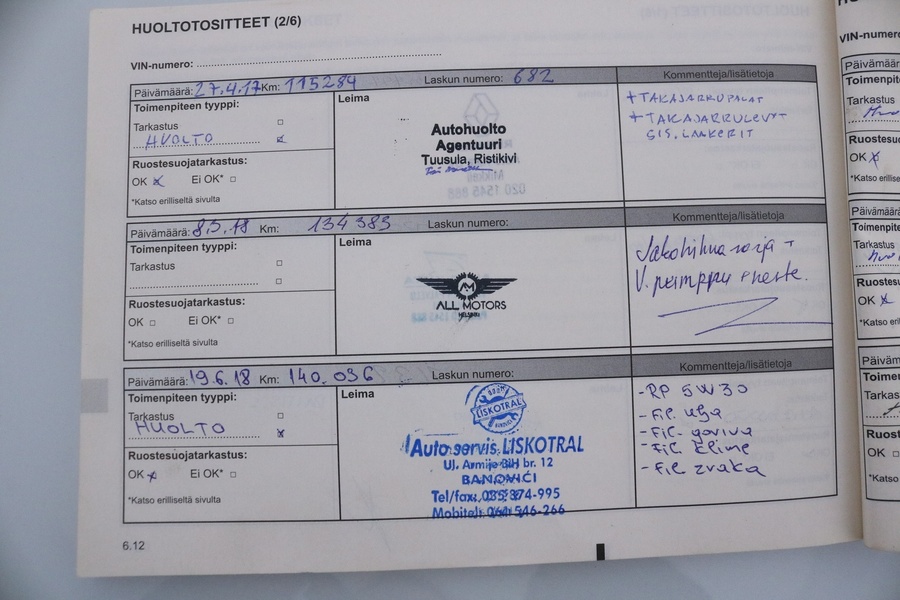 HUOLTOTOSITTEET (2/6)
VIN-numero:
Päivämäärä: 27.4.17 Km: 115284 Laskun numero: 682 Kommentteja/lisätietoja
Toimenpiteen tyyppi:
Leima
Tarkastus
HUOLTO
Ruostesuojatarkastus:
OK Ei OK*
*Katso erilliseltä sivulta
Autohuolto
Agentuuri
Tuusula, Ristikivi
+ TAKAJARRUPALAT
+ TAKAJARRULEVYT
SIS. LAAKERIT
Päivämäärä: 8.5.18 Km: 134383 Laskun numero: Kommentteja/lisätietoja
Toimenpiteen tyyppi:
Leima
Tarkastus
Ruostesuojatarkastus:
OK Ei OK*
*Katso erilliseltä sivulta
AM
ALL MOTORS
HELSINKI
Jakohihna sarja +
V. pumppu + neste.
Päivämäärä: 19.6.18 Km: 140.036 Laskun numero: Kommentteja/lisätietoja
Toimenpiteen tyyppi:
Leima
Tarkastus
HUOLTO
Ruostesuojatarkastus:
OK Ei OK*
*Katso erilliseltä sivulta
LISKOTRAL
Auto servis LISKOTRAL
Ul. Armije BiH br. 12
BANOVIĆI
Tel/fax: 035/874-995
Mobitel: 061 546-266
- RP 5W30
- Fil. ulja
- Fil. goriva
- Fil. klime
- Fil. zraka
6.12
VIN-numero
Päivämäär
Toimenpite
Tarkastus
Ruostesu
OK
*Katso erillise
Päivämäärä
Toimenpite
Tarkastus
Ruosesu
OK
*Katso erill
Päiväm
Toimen
Tarkas
Ruost
OK
*Katso